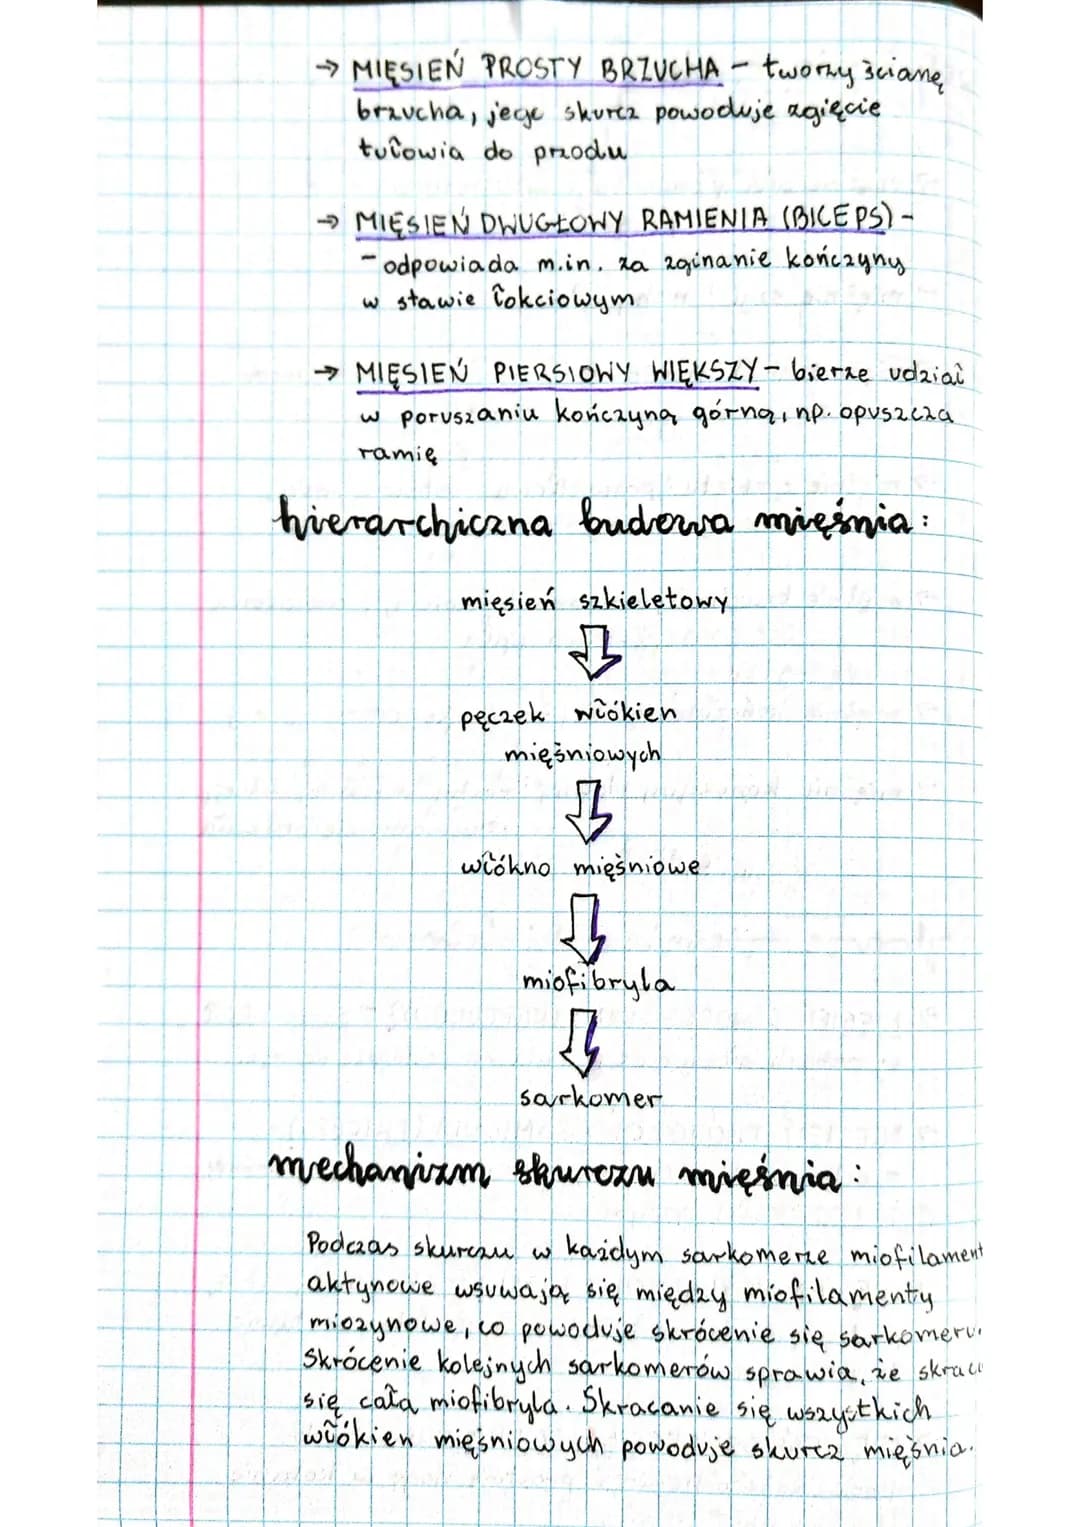 → MIĘSIEŃ PROSTY BRZUCHA - tworzy ścianę
brzucha, jego skurcz powoduje zgięcie
tułowia do przodu
→ MIĘSIEŃ DWUGŁOWY RAMIENIA (BICEPS) -
- odpowiada m.in. za zginanie kończyny
w stawie łokciowym
→ MIĘSIEŃ PIERSIOWY WIĘKSZY - bierze udział
w poruszaniu kończyną górną, np. opuszcza
ramię
hierarchiczna budowa mięśnia:
mięsień szkieletowy
pęczek włókien
mięśniowych
włókno mięśniowe
miofibryla
sarkomer
mechanizm skurczu mięśnia:
Podczas skurczu w każdym sarkomerze miofilament
aktynowe wsuwają się między miofilamenty
miozynowe, co powoduje skrócenie się sarkomeru.
Skrócenie kolejnych sarkomerów sprawia, że skraca
się cała miofibryla. Skracanie się wszystkich
włókien mięśniowych powoduje skurcz mięśnia.